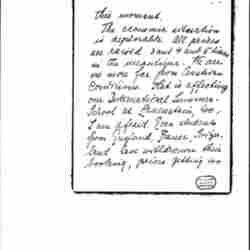 this moment.
The economic situation
is deplorable. All prices
are raised 3 and 4 and 5 times
in the meantime. We are
no more far from Austrian
conditions. That is affecting
our International Summer-
School at Lauenstein, too.
I am afraid. Even students
from England, France, Switzer-
land have withdrawn their
booking, prices getting too